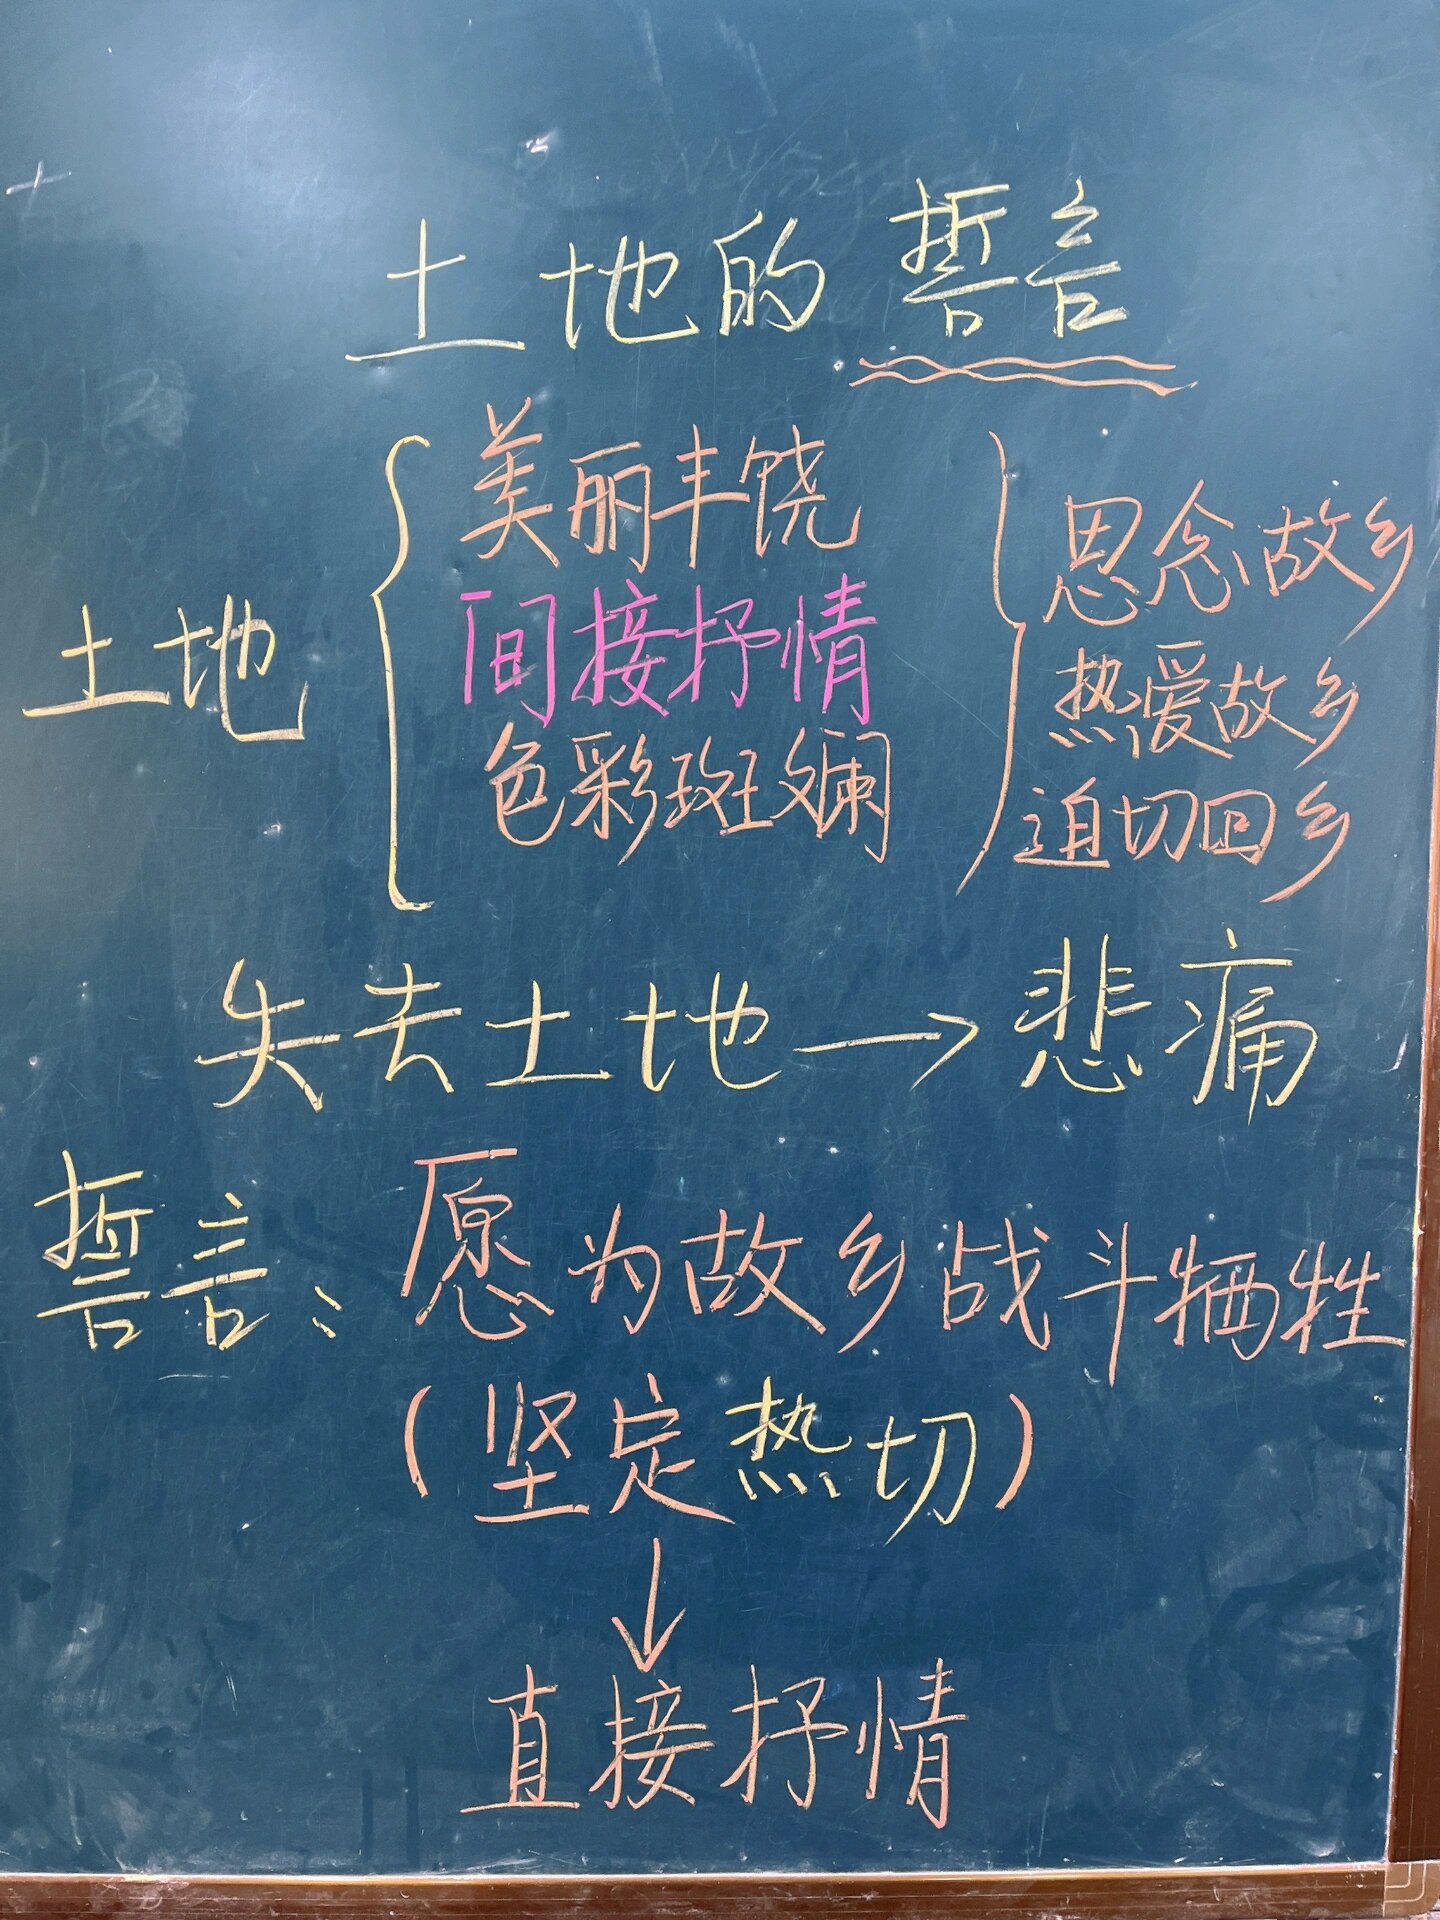 土地的誓言
美丽丰饶
土地
间接抒情
色彩斑斓
思念故乡
热爱故乡
迫切回乡
失去土地→悲痛
誓言:愿为故乡战斗牺牲
(坚定热切)
↓
直接抒情